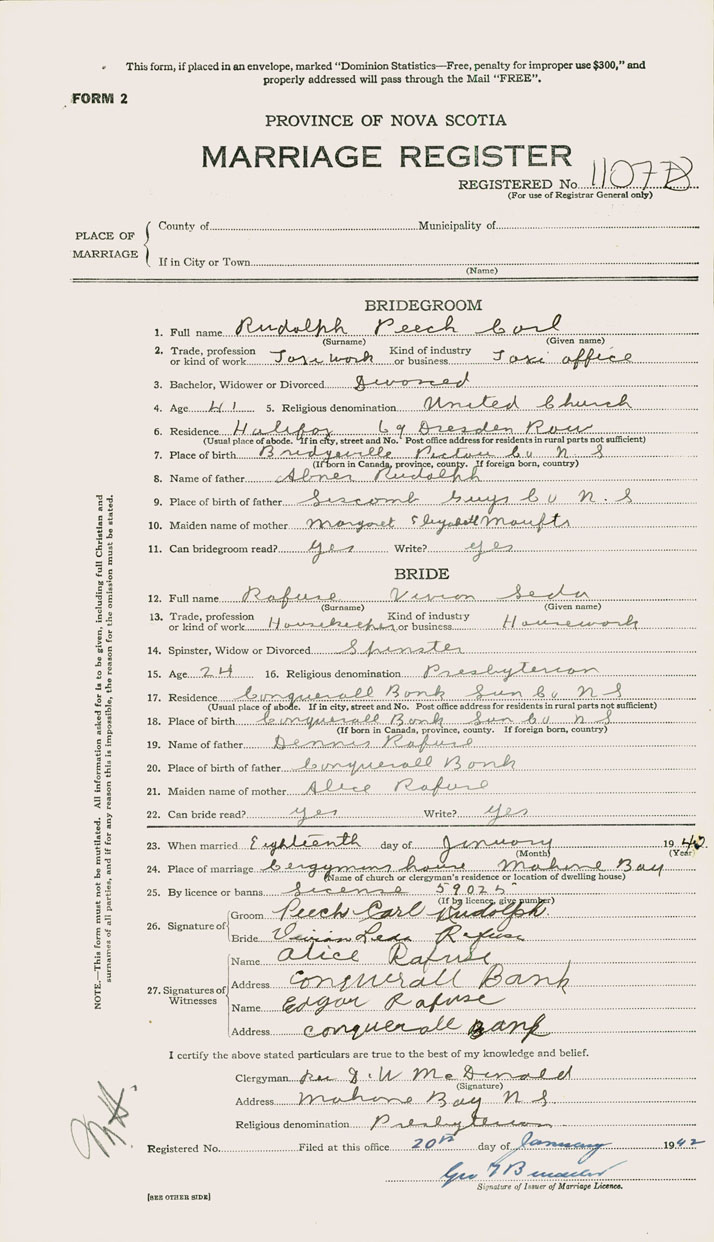 This form, if placed in an envelope, marked "Dominion Statistics—Free, penalty for improper use $300," and
properly addressed will pass through the Mail "FREE".
FORM 2
PROVINCE OF NOVA SCOTIA
MARRIAGE REGISTER
REGISTERED No. 1107
(For use of Registrar General only)
PLACE OF MARRIAGE
County of Municipality of
If in City or Town
(Name)
BRIDEGROOM
1. Full name Rudolph Peech Carl
(Surname) (Given name)
2. Trade, profession or kind of work Taxi work Kind of industry or business Taxi office
3. Bachelor, Widower or Divorced Divorced
4. Age 41 5. Religious denomination United Church
6. Residence Halifax 69 Dresden Row
(Usual place of abode. If in city, street and No. Post office address for residents in rural parts not sufficient)
7. Place of birth Bridgeville Pictou Co N. S
(If born in Canada, province, county. If foreign born, country)
8. Name of father Abner Rudolph
9. Place of birth of father Liscomb Guys Co N. S
10. Maiden name of mother Margret Elizabeth
11. Can bridegroom read? Yes Write? Yes
BRIDE
12. Full name Rafuse Vivian Leda
(Surname) (Given name)
13. Trade, profession or kind of work Housekeeper Kind of industry or business. Housework
14. Spinster, Widow or Divorced Spinster
15. Age 24 16. Religious denomination Presbyterian
17. Residence Conquerall Bank Lun Co N S
(Usual place of abode. If in city, street and No. Post office address for residents in rural parts not sufficient)
18. Place of birth Conquerall Bank Lun Co N S
(If born in Canada, province, county. If foreign born, country)
19. Name of father Dennis Rafuse
20. Place of birth of father Conquerall Bank
21. Maiden name of mother Alice Rafuse
22. Can bride read? yes Write? yes
23. When married Eighteenth day of January 1942.
(Month) (Year)
24. Place of marriage Clergymans house Mahone Bay
(Name of church or clergyman's residence or location of dwelling house)
25. By licence or banns License 59025
(If by licence, give number)
26. Signature of
Groom Peech Carl Rudolph.
Bride Vivian Leda Rafuse
27. Signatures of Witnesses
Name Alice Rafuse
Address Conquerall Bank
Name Edgar Rafuse
Address conquerall Bank
I certify the above stated particulars are true to the best of my knowledge and belief.
Clergyman Rev D. W McDonald
(Signature)
Address Mahone Bay N S
Religious denomination Presbyterian
Registered No. Filed at this office 20th day of January 1942
Signature of Issuer of Marriage Licence.
[SEE OTHER SIDE]
NOTE.—This form must not be mutilated. All information asked for is to be given, including full Christian and
surnames of all parties, and if for any reason this is impossible, the reason for the omission must be stated.